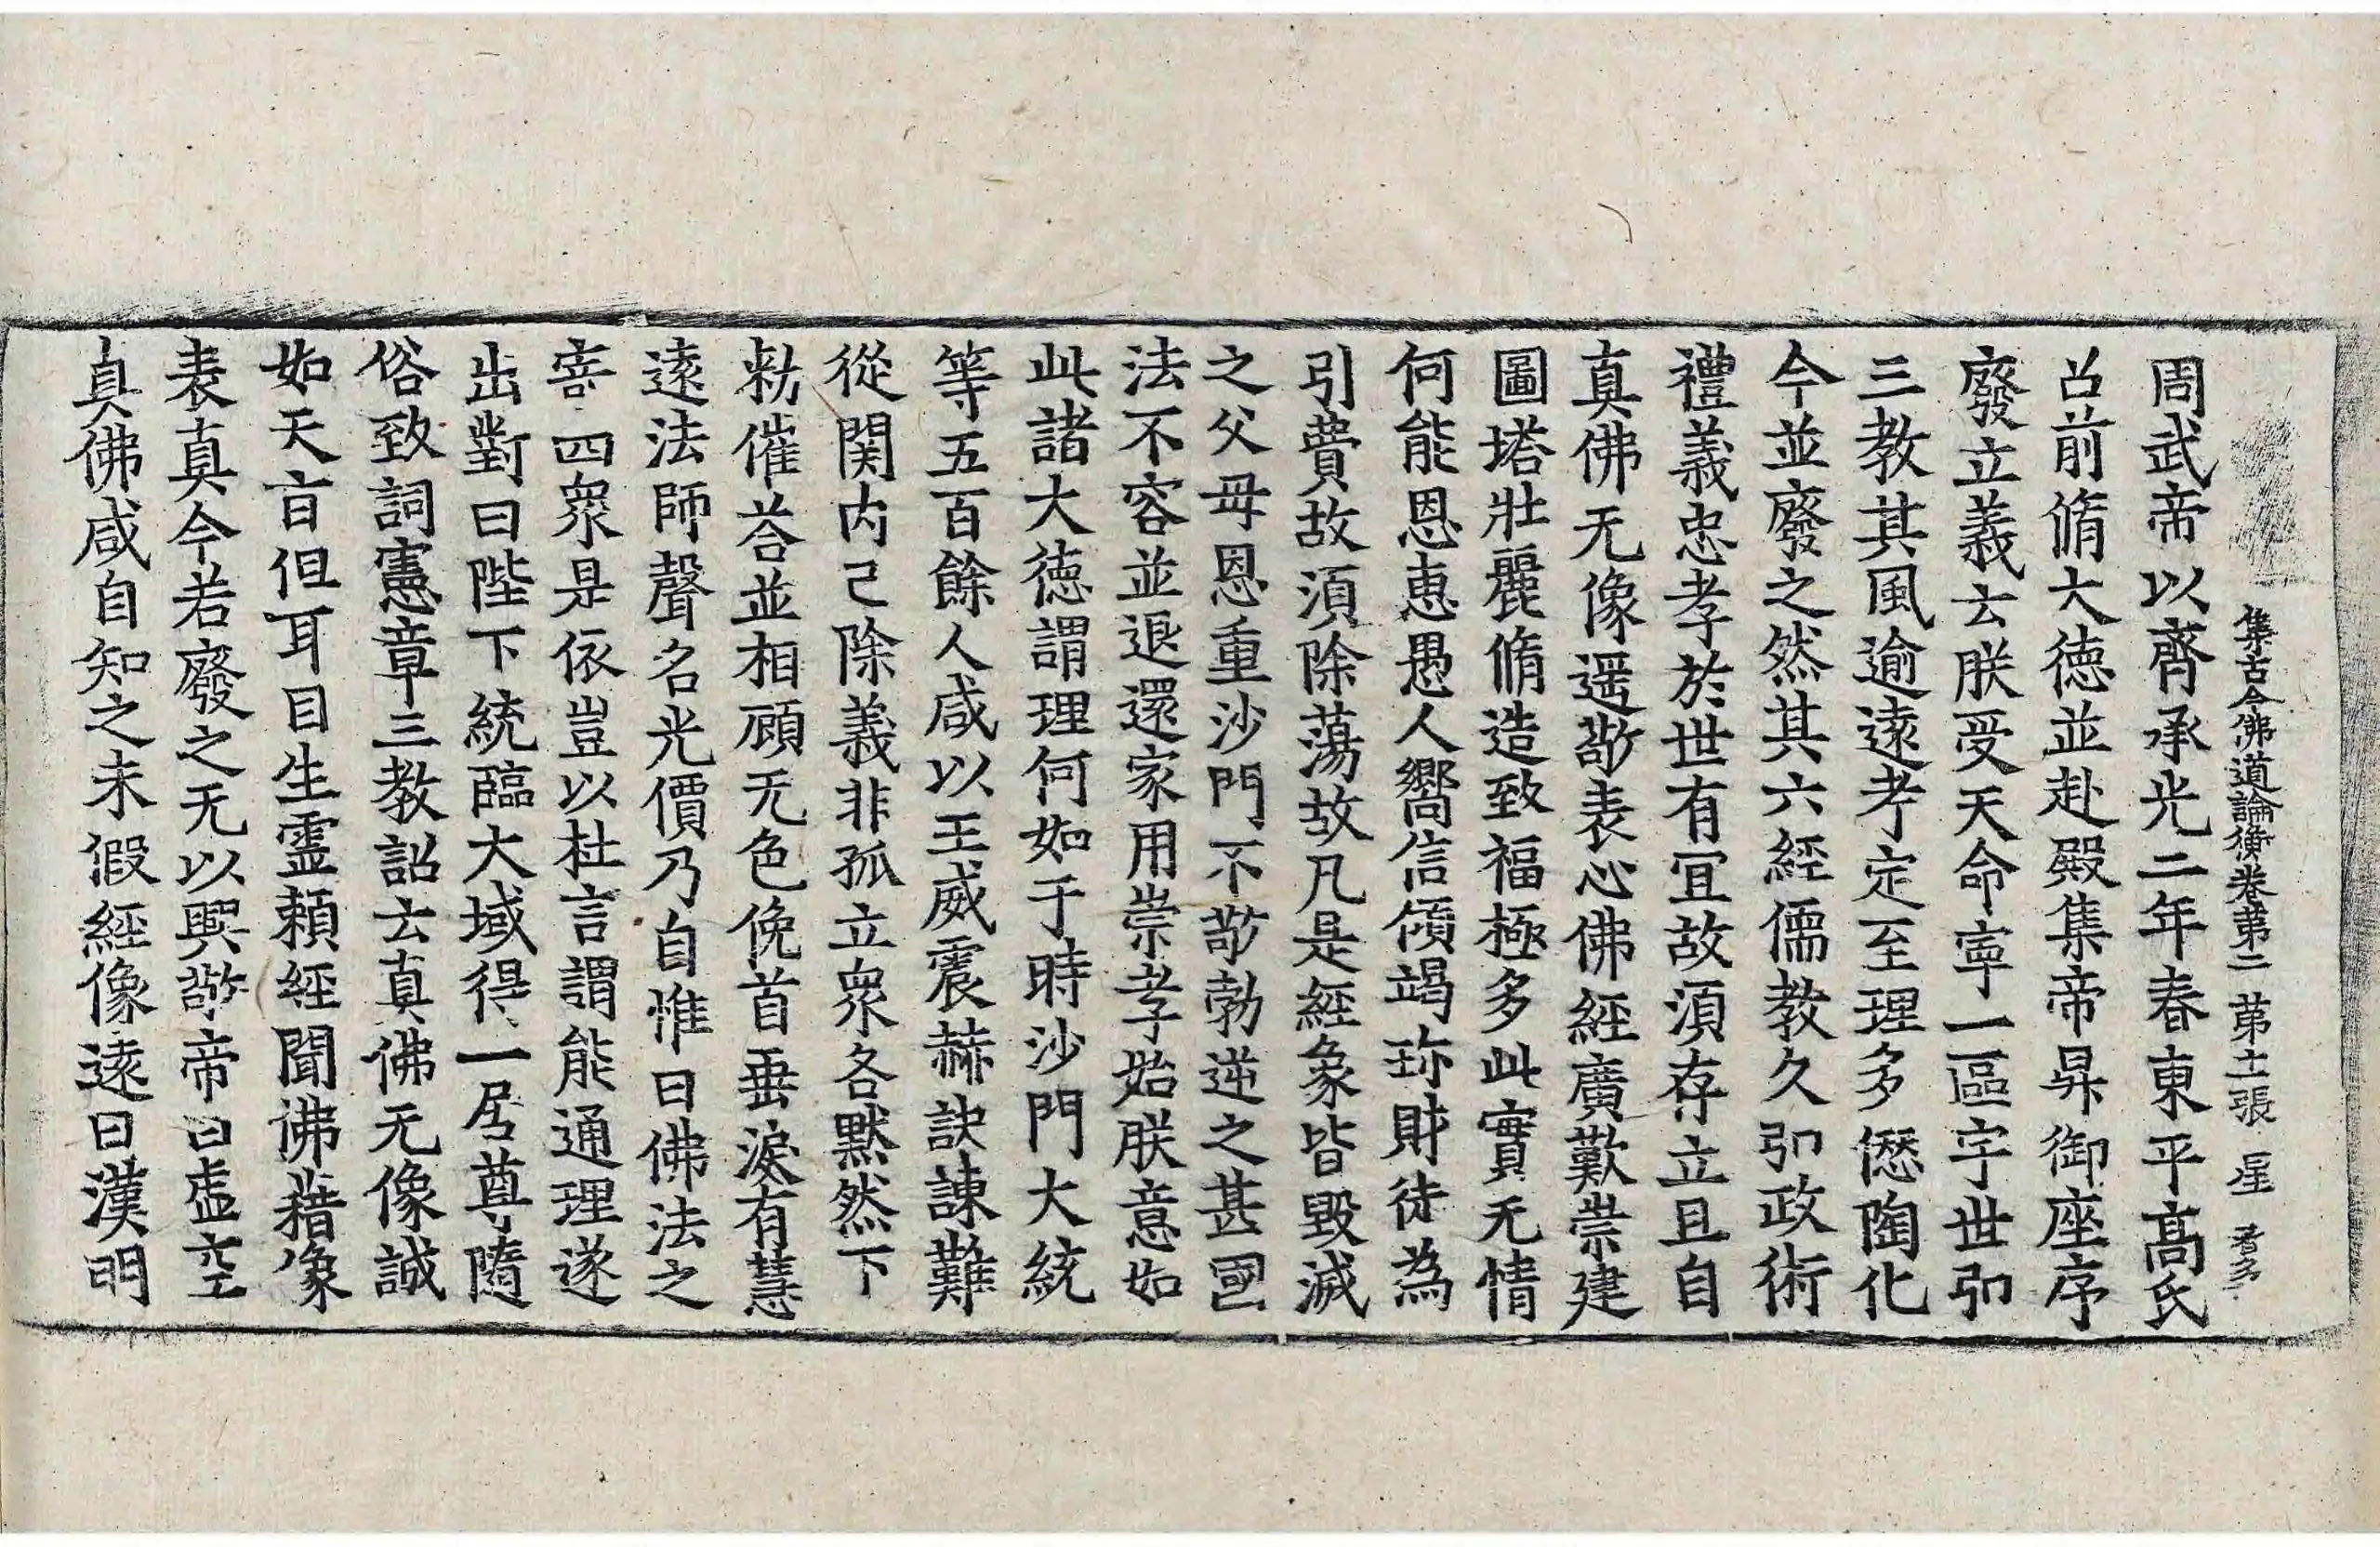 集古今佛道論衡卷第二 第十一張 星
周武帝以齊承光二年春東平高氏
召前脩大德並赴殿集帝昇御座序
廢立義云朕受天命寧一區宇世弘
三教其風逾遠考定至理多𠎝陶化
今並廢之然其六經儒教久弘政術
禮義忠孝於世有宜故須存立且自
真佛无像遥敬表心佛經廣歎崇建
圖塔壯麗脩造致福極多此實无情
何能恩惠愚人嚮信傾竭珎財徒為
引費故須除蕩故凡是經象皆毀滅
之父毋恩重沙門不敬勃逆之甚國
法不容並退還家用崇孝始朕意如
此諸大德謂理何如于時沙門大統
等五百餘人咸以王威震赫訣諫難
從関内己除義非孤立衆各默然下
勑催荅並相顧无色俛首垂淚有慧
遠法師聲名光價乃自惟曰佛法之
寄四衆是依豈以杜言謂能通理遂
出對曰陛下統臨大域得一居尊隨
俗致詞憲章三教詔云真佛无像誠
如天旨但耳目生靈賴經聞佛藉像
表真今若廢之无以興敬帝曰虛空
真佛咸自知之未假經像遠曰漢明